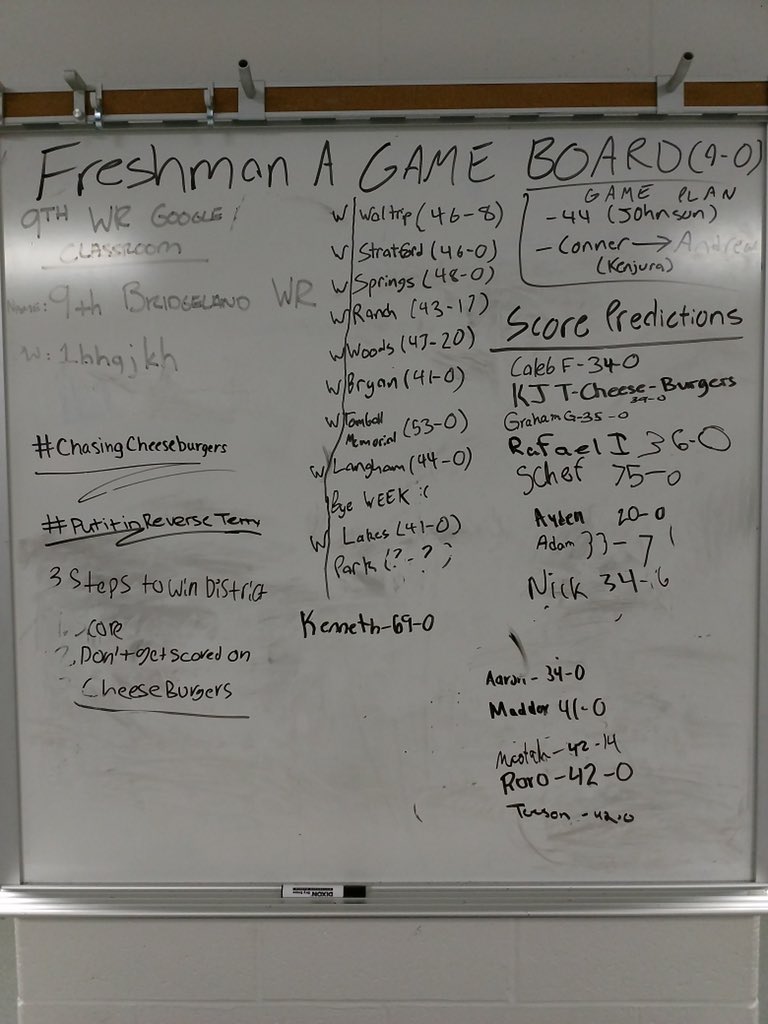 Freshman A GAME BOARD (9-0)
9TH WR GOOGLE
CLASSROOM
Name: 9th BRIDGELAND WR
#ChasingCheeseburgers
#PutitinReverseTerry
3 Steps to win District
1. score
2. Don't get scored on
CheeseBurgers
W Waltrip (46-8)
W Stratford (46-0)
W Springs (48-0)
W Ranch (43-17)
W Woods (47-20)
W Bryan (41-0)
W Tomball
Memorial (53-0)
W Langham (44-0)
Bye WEEK :(
W Lakes (41-0)
Park (?-?)
Kenneth-69-0
GAME PLAN
-44 (Johnson)
- Conner → Andrew
(Kenjura)
Score Predictions
Caleb F-34-0
KJT-Cheese-Burgers
39-0
Graham G-35-0
Rafael I 36-0
Schef 75-0
Ayden 20-0
Adam 33-7
Nick 34-6
Aaron-34-0
Maddox 41-0
42-14
Roro-42-0
-42-0
DIXON